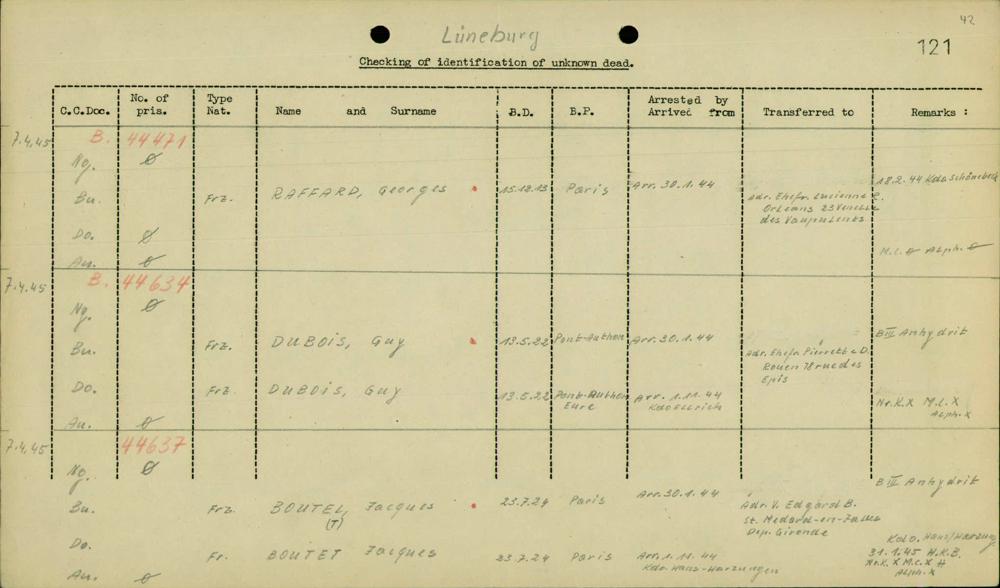 42
Lüneburg
121
Checking of identification of unknown dead.
C.C.Doc. No. of pris. Type Nat. Name and Surname B.D. B.P. Arrested by Arrived from Transferred to Remarks :
7.4.45 B. 44471
Ng. ∅
Bu. Frz. RAFFARD, Georges 15.12.13 Paris Arr. 30.1.44 18.2.44 Kdo Schönebeck
Adr. Ehefr. Lucienne R.
Orleans 23 Venelle
des
Do. ∅
Au. ∅ M.C. ∅ Alph. ∅
7.4.45 B. 44634
Ng. ∅
Bu. Frz. DUBOIS, Guy 13.5.22 Pont-Authou Arr. 30.1.44 B III Anhydrit
Adr. Ehefr. D.
Rouen rue des
Epis
Do. Frz. DUBOIS, Guy 13.5.22 Pont-Authou Eure Arr. 1.11.44 Kdo Ellrich Nr.K. X M.C. X
Alph. X
Au. ∅
7.4.45 44637
Ng. ∅
B III Anhydrit
Bu. Frz. BOUTEL, Jacques 23.7.24 Paris Arr. 30.1.44 Adr. V. Edgard B.
(T) St. Medard-en-Jalles
Dep. Gironde
Do. Fr. BOUTET Jacques 23.7.24 Paris Arr. 1.11.44 Kdo. Hans/Harzung
Kdo. Hans-Harzungen 31.1.45 H.K.B.
Nr.K. X M.C. X #
Au. ∅ Alph. X